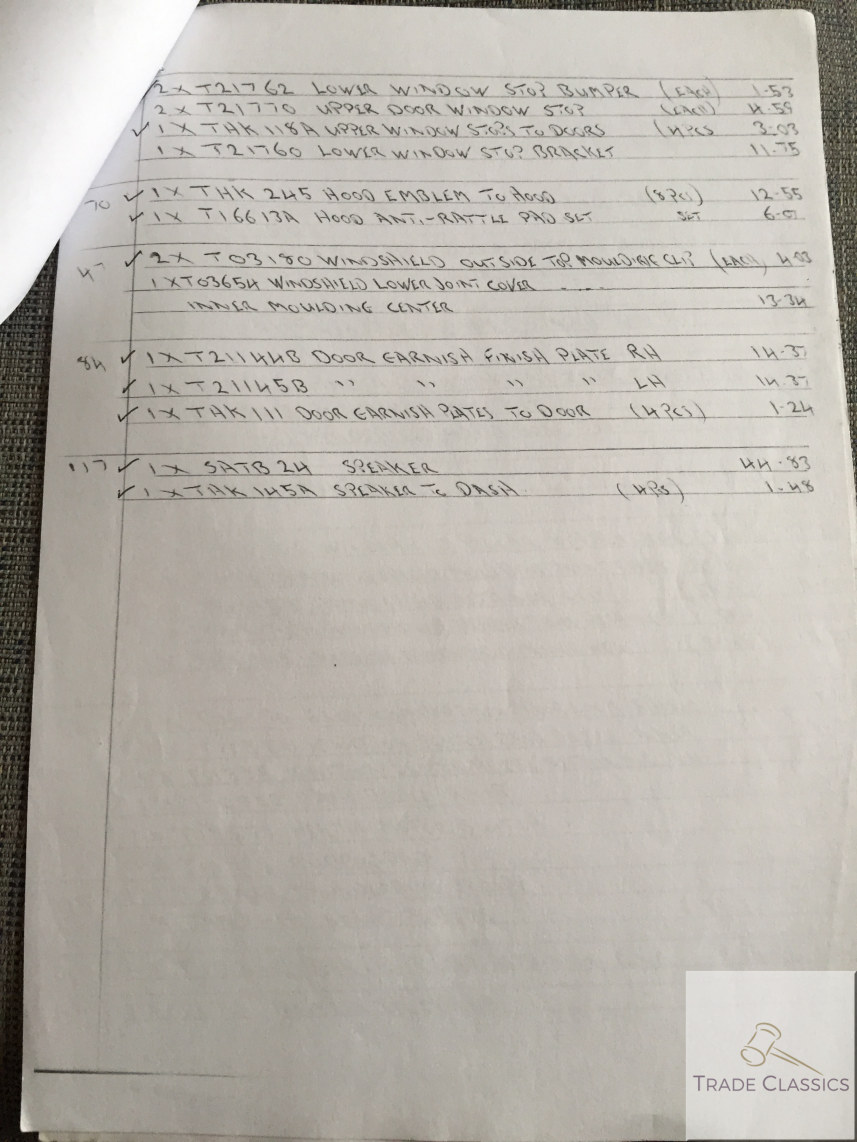 2 x T21762 LOWER WINDOW STOP BUMPER (EACH) 1-53
2 x T21770 UPPER DOOR WINDOW STOP (EACH) 4-59
✓ 1 x THK 118A UPPER WINDOW STOPS TO DOORS (4 PCS 3-03
1 x T21760 LOWER WINDOW STOP BRACKET 11-75
70 ✓ 1 x THK 245 HOOD EMBLEM TO HOOD (8 PCS) 12-55
✓ 1 x T16613A HOOD ANTI-RATTLE PAD SET SET
✓ 2 x T03180 WINDSHIELD OUTSIDE TOP MOULDING CLIP (EACH)
1 x T03654 WINDSHIELD LOWER JOINT COVER
INNER MOULDING CENTER 13-34
84 ✓ 1 x T21144B DOOR GARNISH FINISH PLATE RH
✓ 1 x T21145B " " " " LH
✓ 1 x THK 111 DOOR GARNISH PLATES TO DOOR (4 PCS) 1-24
117 ✓ 1 x SATB 24 SPEAKER 44-83
✓ 1 x THK 145A SPEAKER TO DASH (4 PCS) 1-48
TRADE CLASSICS